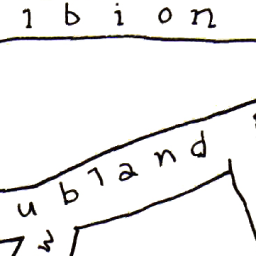 lbion
ubland